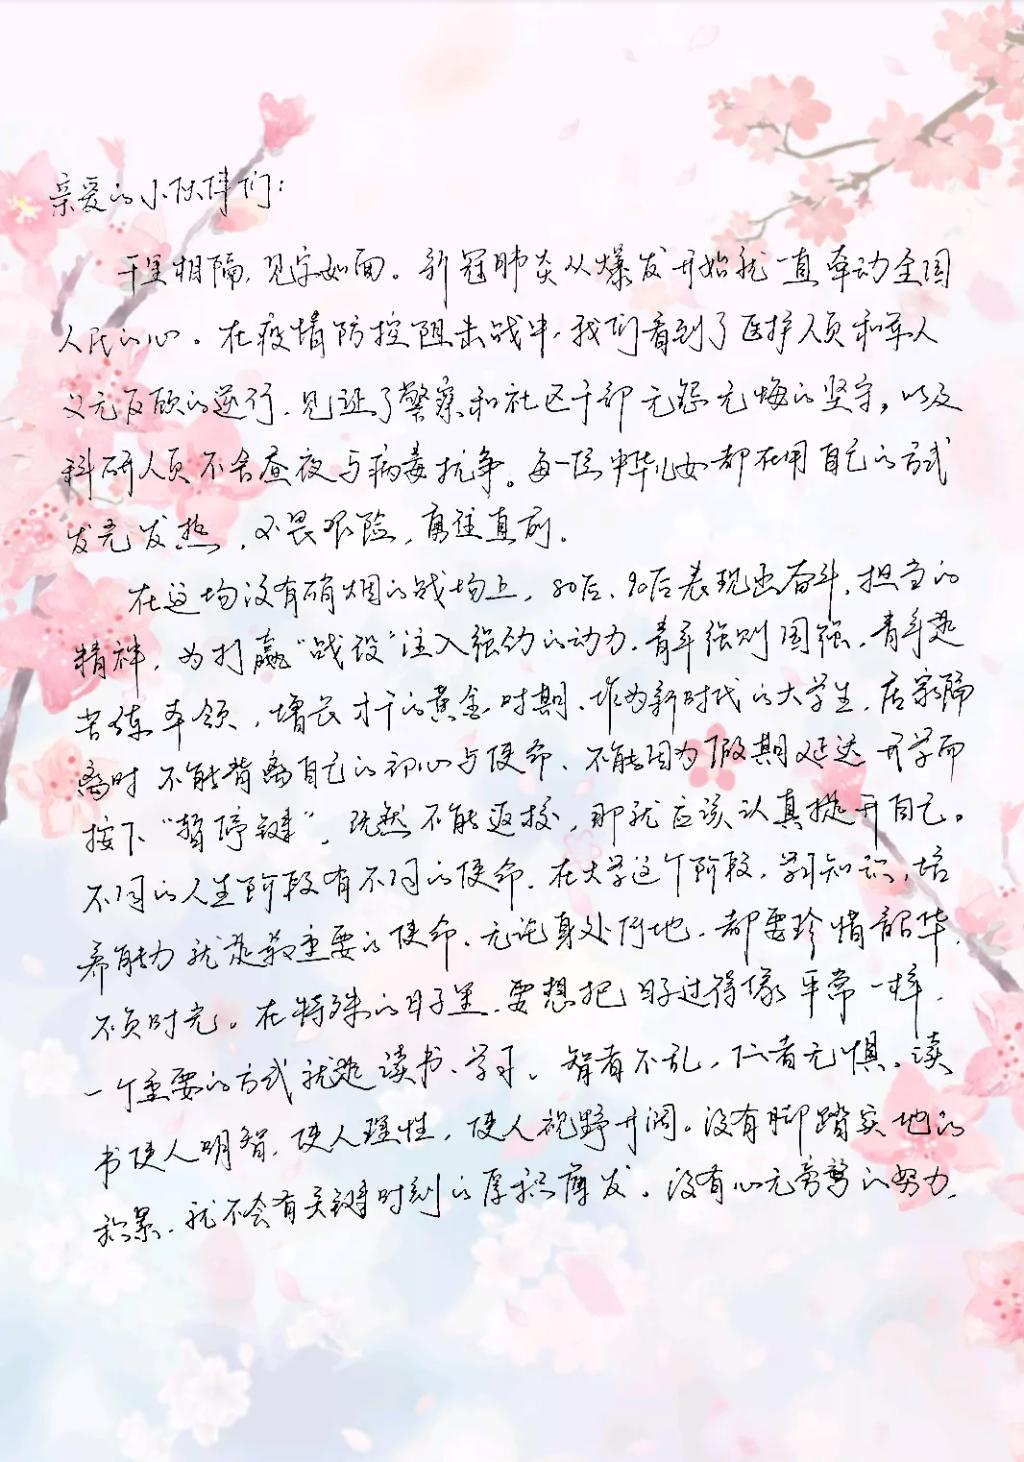 亲爱的小伙伴们：
千里相隔，见字如面。新冠肺炎从爆发开始就一直牵动全国
人民的心。在疫情防控阻击战中，我们看到了医护人员和军人
义无反顾的逆行、见证了警察和社区干部无怨无悔的坚守，以及
科研人员不舍昼夜与病毒抗争。每一位中华儿女都在用自己的方式
发光发热，不畏艰险，勇往直前。
在这场没有硝烟的战场上，80后、90后表现出奋斗、担当的
精神，为打赢“战役”注入强劲的动力。青年强则国强，青年是
苦练本领，增长才干的黄金时期、作为新时代的大学生，居家隔
离时不能背离自己的初心与使命、不能因为假期延迟开学而
按下“暂停键”，既然不能返校，那就应该认真提升自己。
不同的人生阶段有不同的使命，在大学这个阶段，学习知识，培
养能力就是最重要的使命、无论身处何地，都要珍惜韶华，
不负时光。在特殊的日子里，要想把日子过得像平常一样，
一个重要的方式就是读书、学习。智者不乱，仁者无惧。读
书使人明智，使人理性，使人视野开阔。没有脚踏实地的
积累，就不会有关键时刻的厚积薄发。没有心无旁骛的努力，